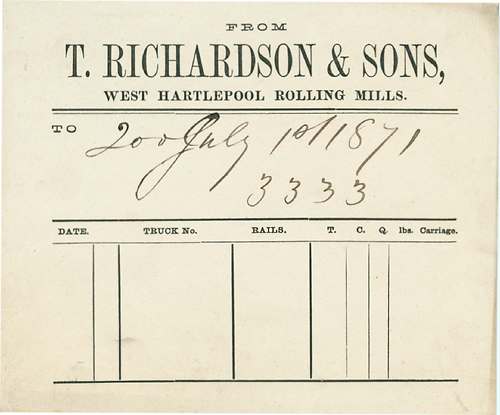 FROM
T. RICHARDSON & SONS,
WEST HARTLEPOOL ROLLING MILLS.
TO
200 July 1st 1871
3333
DATE. TRUCK No. RAILS. T. C. Q. lbs. Carriage.